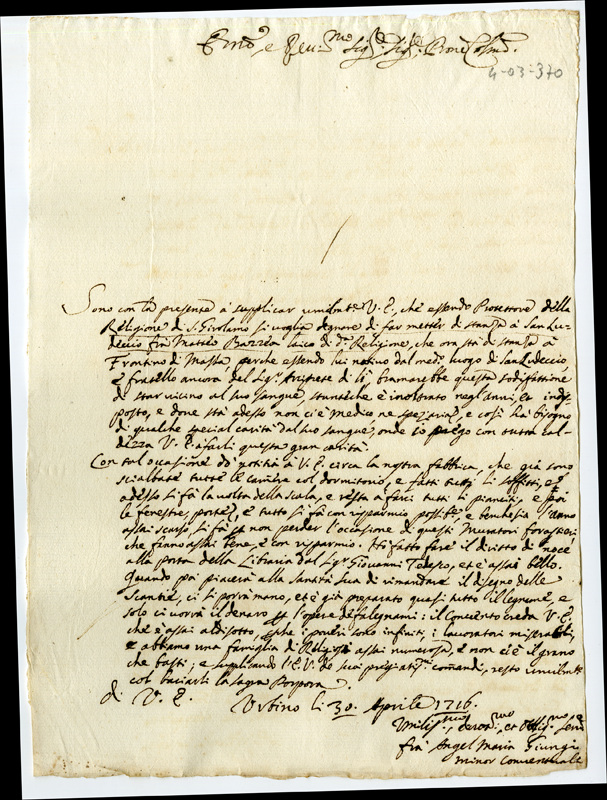 Em.o e Rev.mo Sig.r Sig.r Pron Col.mo
4-03-370
Sono con la presente à supplicar umilm.te V. E., che essendo Protettore della
Religione di S. Girolamo si voglia degnare di far metter di stanza à San Lu-
deccio frà Matteo Bazzea laico di d.a Religione, che ora stà di stanza à
Frontino di Massa, perche essendo lui nativo dal med.o luogo di San Ludeccio,
e fratello ancora del Sig.r bramarebbe questa sodisfattione
di star vicino al suo sangue, stanteche è inoltrato negl'anni, ed indis-
posto, e dove stà adesso non ci è medico ne speziaria, e così hà bisogno
di qualche special carità dal suo sangue, onde io prego con tutta cal-
dezza V. E. à farli questa gran carità.
Con tal occasione dò notitia à V. E. circa la nostra fabbrica, che già sono
scialbate tutte le camere col dormitorio, e fatti tutti li soffitti, e
adesso si fà la volta della scala, e resta à farci tutti li pianciti, e poi
le fenestre, porte, e tutto si fà con risparmio possib.e, e benche sia l'anno
assai scarso, si fà p non perder l'occasione di questi Muratori forastieri
che fanno assai bene, e con risparmio. Hò fatto fare il diritto di noce
alla porta della Libraria dal Sig.r Giovanni Tedesco, et è assai bello.
Quando poi piacerà alla Santità Sua di rimandare il disegno delle
Scantie, ci si porrà mano, et è già preparato quasi tutto il legname, e
solo ci vorrà il denaro p l'opere de falegnami: il Convento creda V. E.
che è assai al disotto, p che i poveri sono infiniti, i lavoratori miserabili,
e abbiamo una famiglia di Religiosi assai numerosa, e non ci è il grano
che basti; e supplicando l'E. V. de suoi pregiatis.mi comandi, resto umilmente
col baciarli la sagra Porpora
di V. E.
Urbino li 30. Aprile 1716.
Umilis.mo, devot.mo, et Oblig.mo Serv
frà Angel Maria Giungi
Minor Conventuale